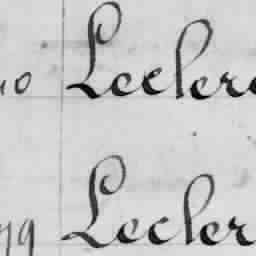 10 Lecler
79 Lecler